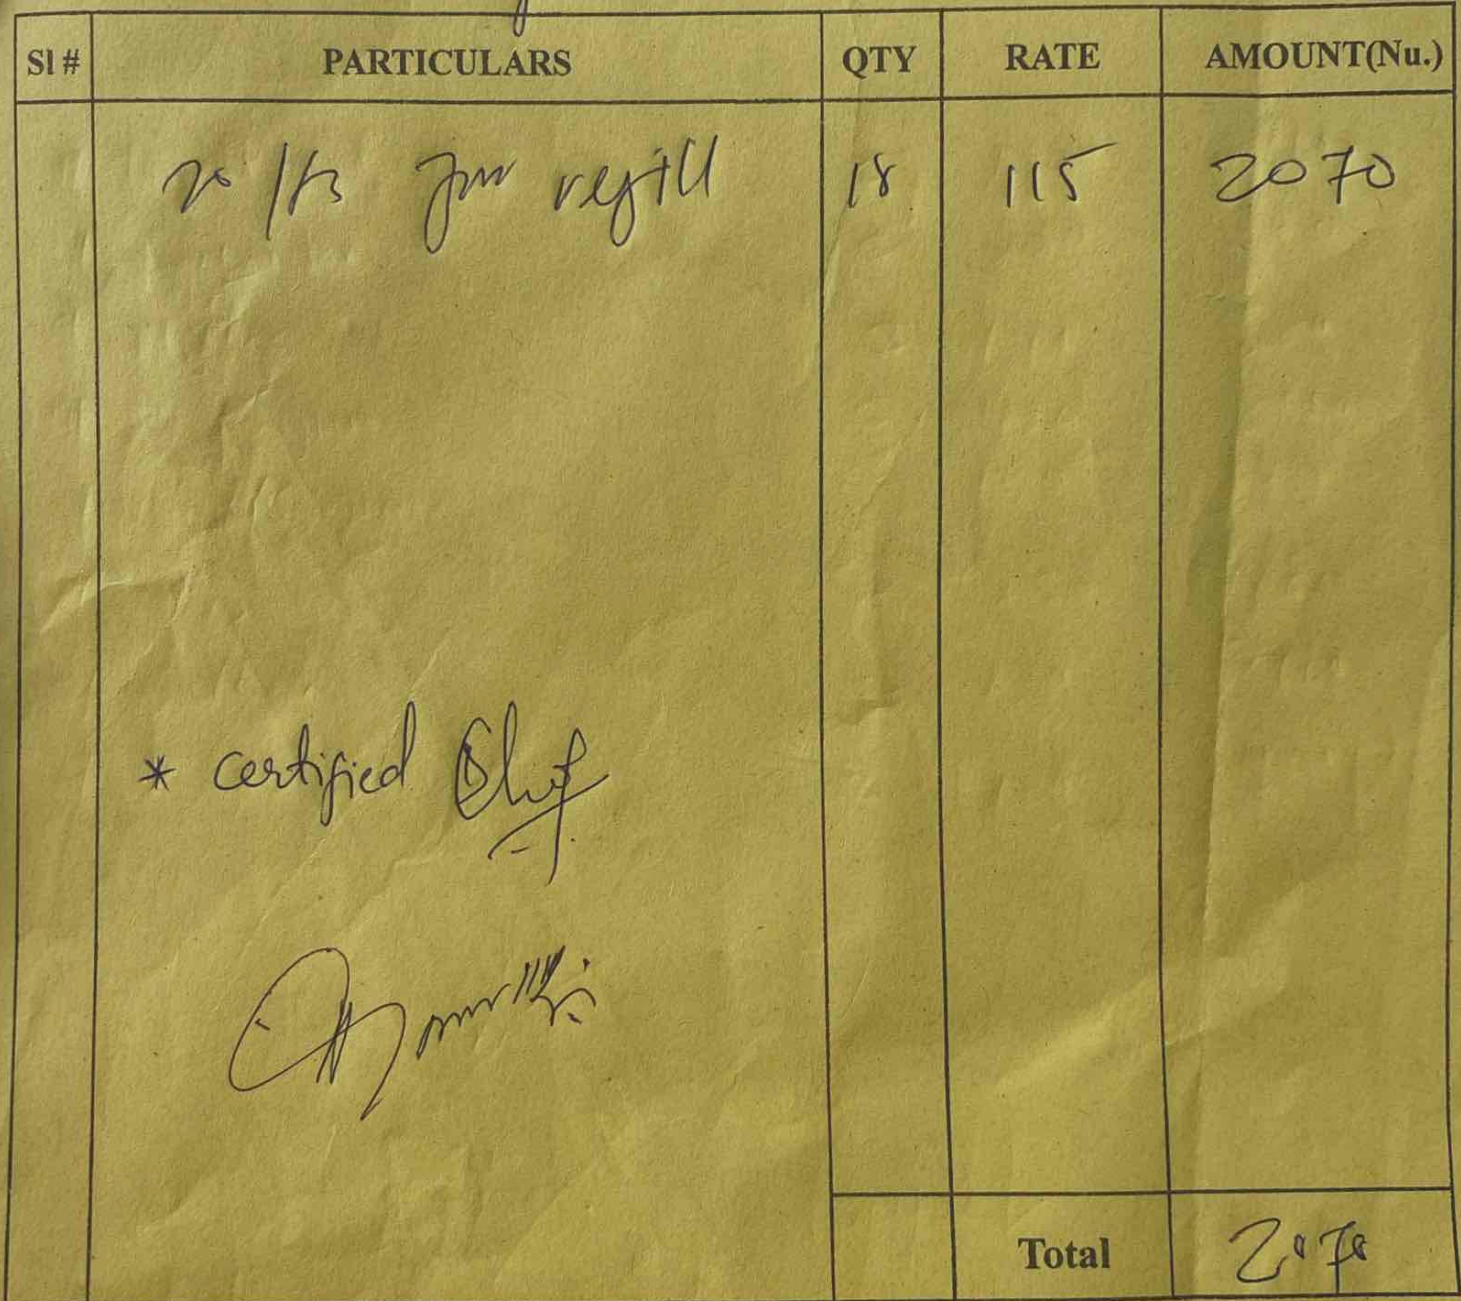 Sl # PARTICULARS QTY RATE AMOUNT(Nu.)
20 ltrs Jar refill 18 115 2070
* certified
Total 2070